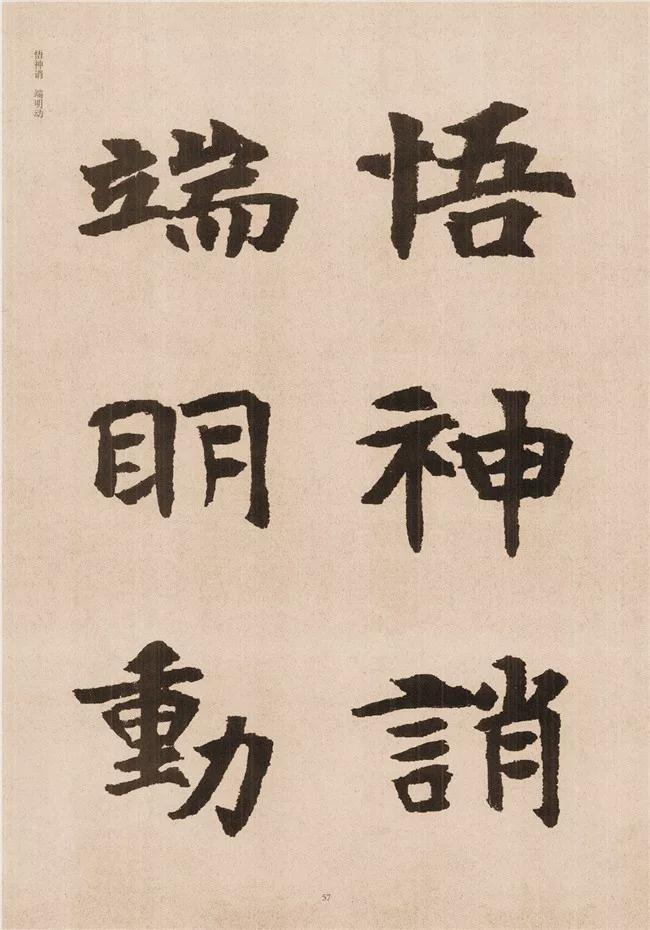 悟神誚
端明動
悟神诮 端明动
57